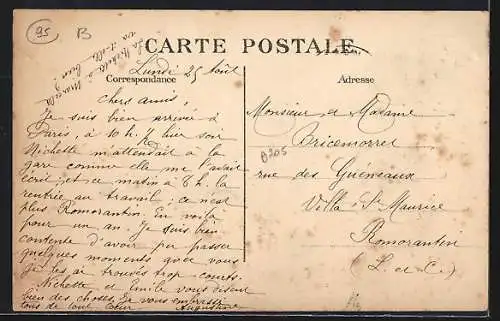 95 B
La Nichette a
va-t-elle bien ?
CARTE POSTALE
Correspondance
Adresse
Lundi 25 Août
Chers amis,
Je suis bien arrivée à
Paris, à 10 h. ½ hier soir
Nichette m'attendait à la
gare comme elle me l'avait
écrit, et ce matin à 6 h. la
rentrée au travail ; ce n'est
plus Romorantin. En voilà
pour un an. Je suis bien
contente d'avoir pu passer
quelques moments avec vous
je les ai trouvés trop courts.
Nichette et Emile vous disent
bien des choses Je vous embrasse
tous de tout cœur Augustine
Monsieur et Madame
Bricemorret
B305
rue des Guémeaux
Villa St Maurice
Romorantin
(L. et C.)